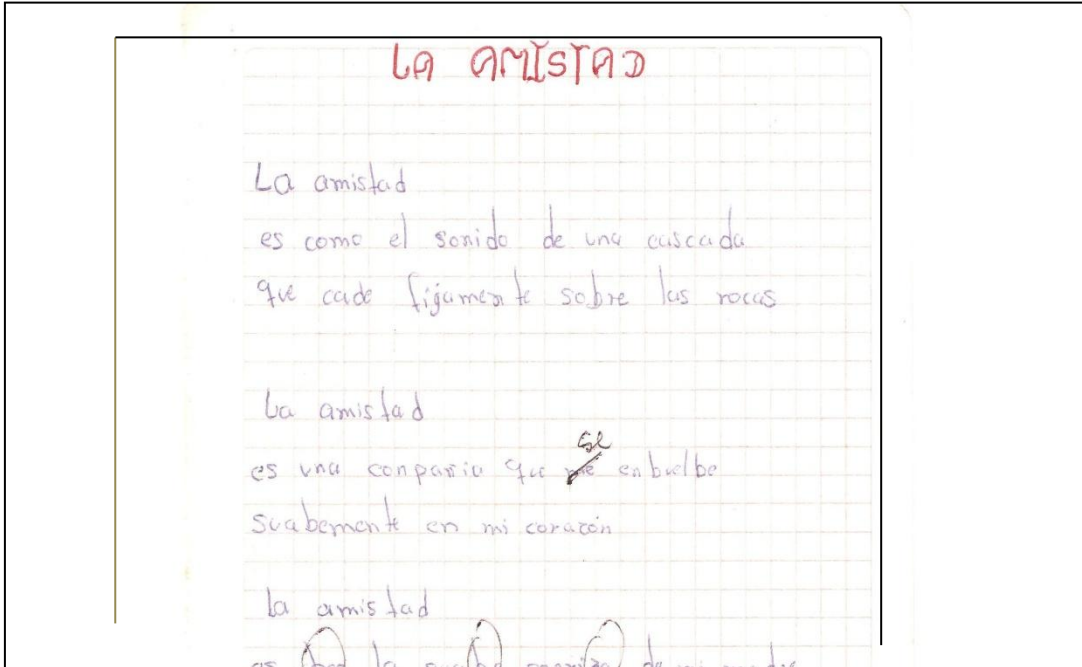 LA AMISTAD
La amistad
es como el sonido de una cascada
que cade fijamente sobre las rocas
La amistad
es una conpañia que se enbuelbe
suabemente en mi corazón
la amistad
es la